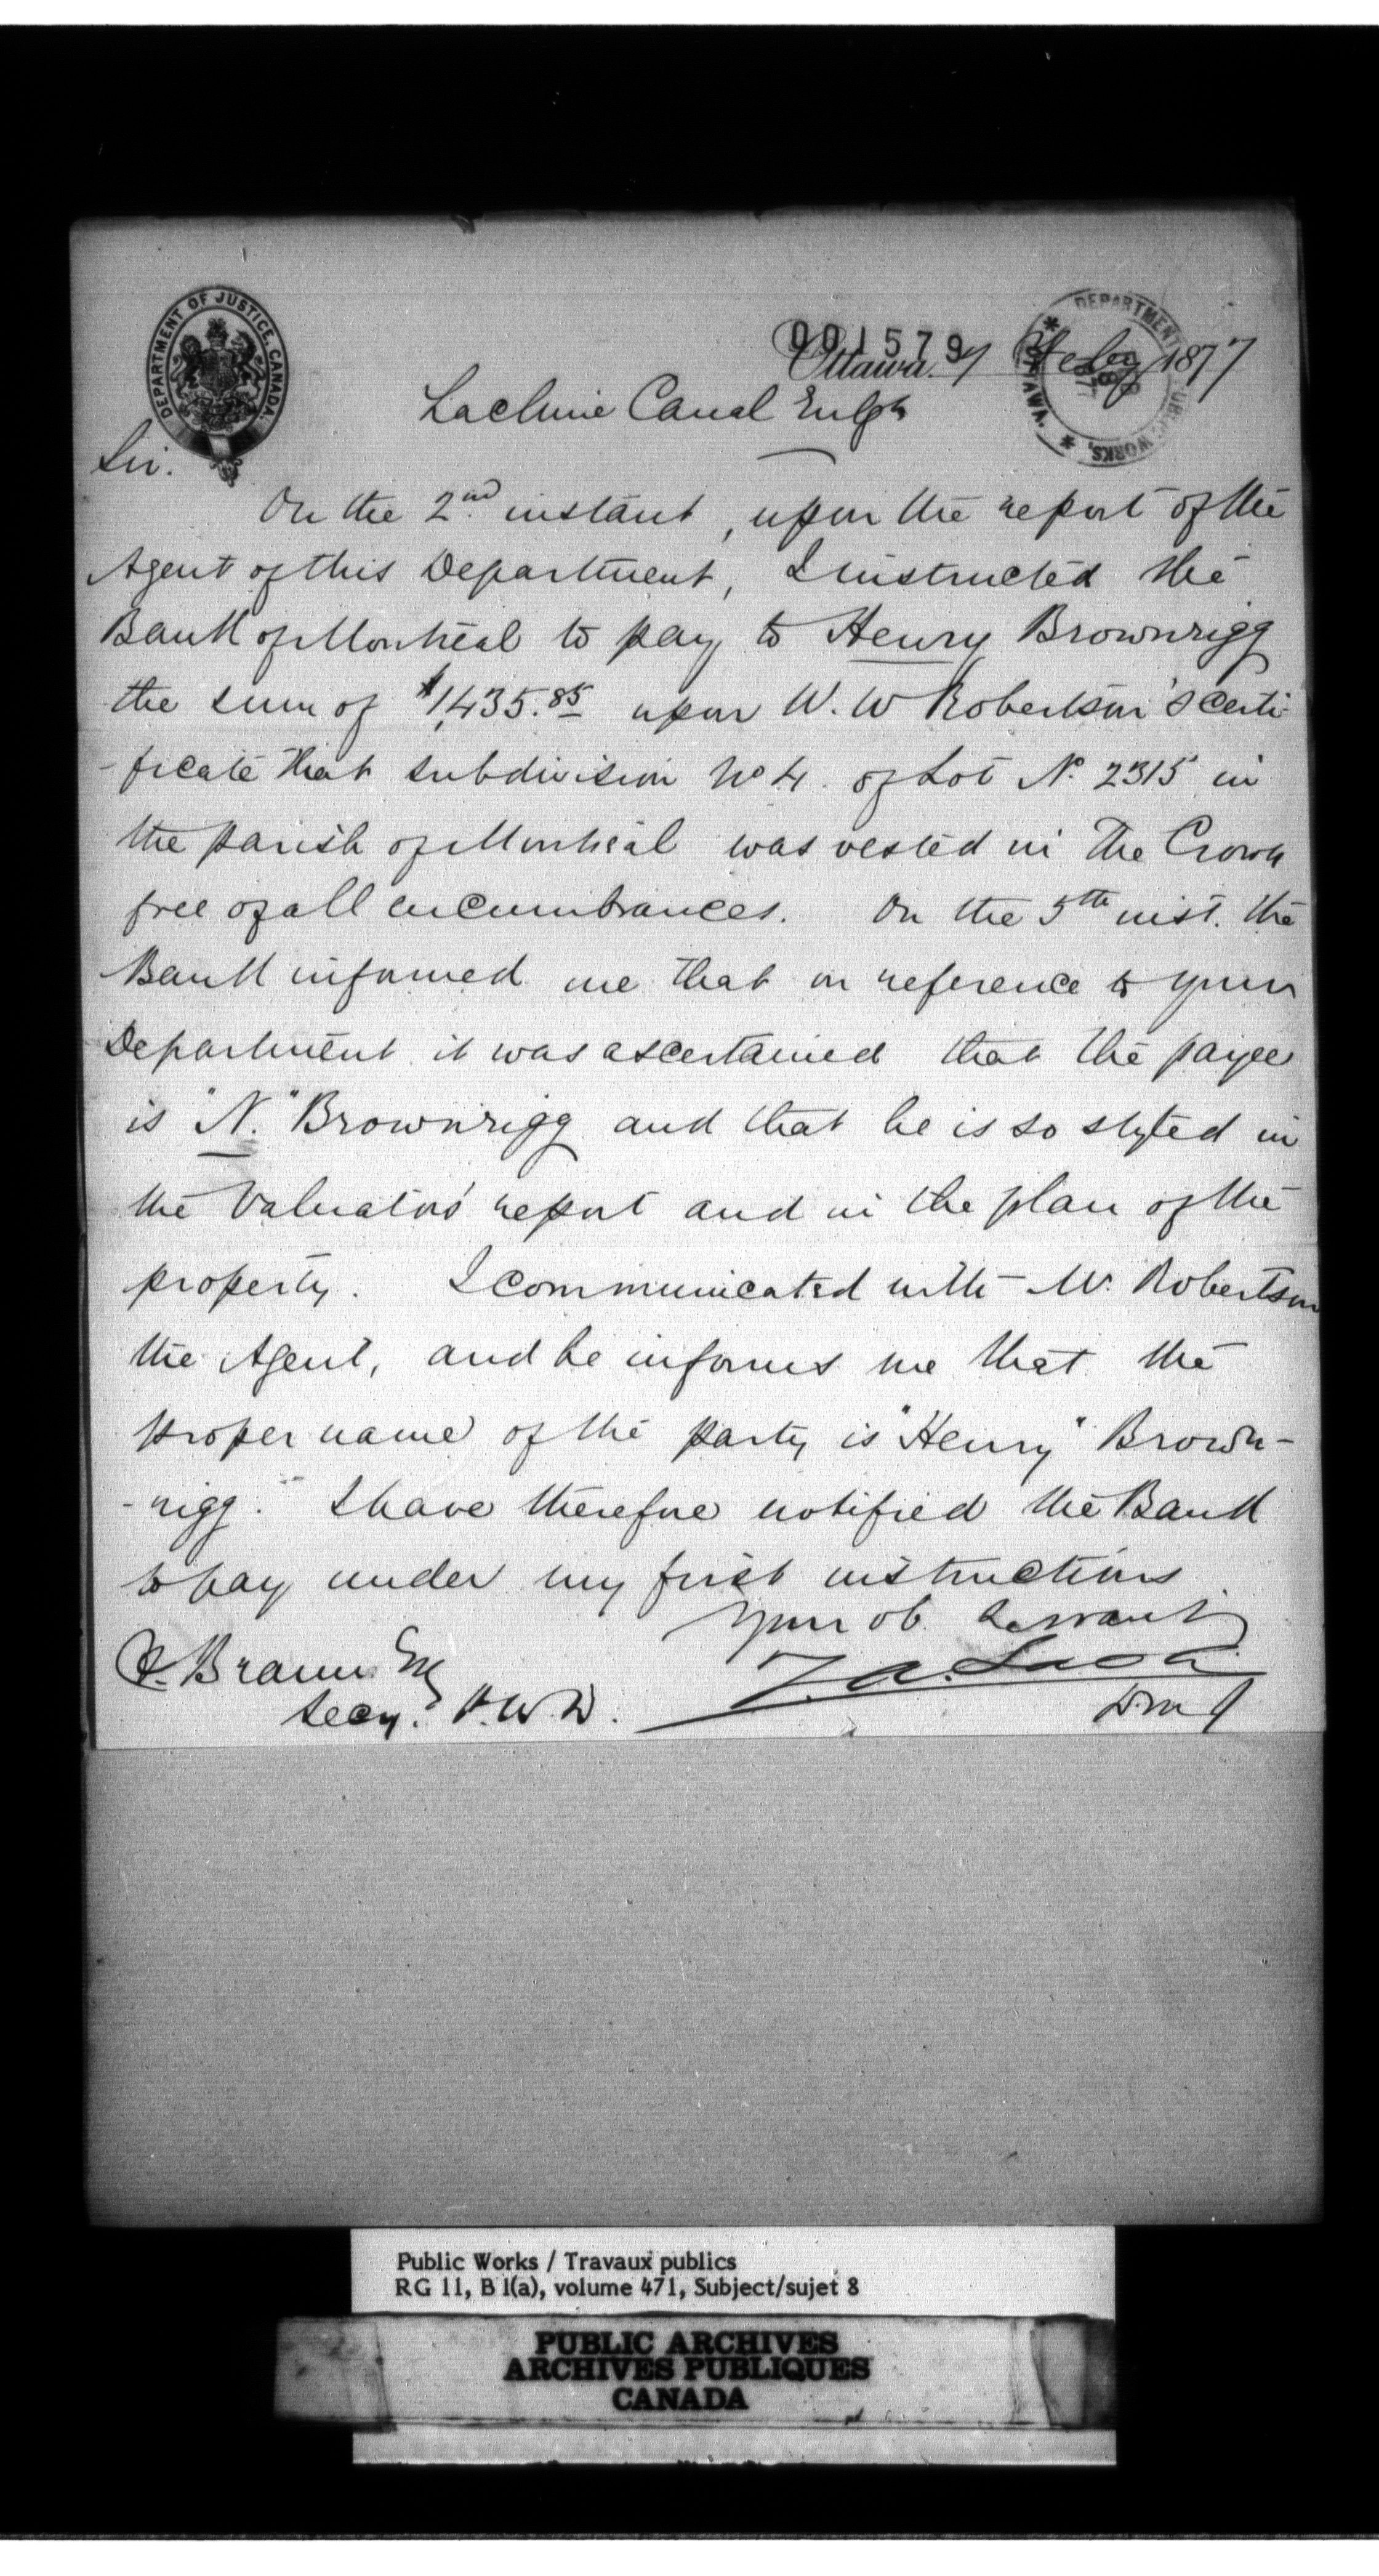 DEPARTMENT OF JUSTICE, CANADA.
001579
DEPARTMENT PUBLIC WORKS, OTTAWA
Ottawa 7 Feby 1877
Lachine Canal Enlgt
Sir.
On the 2nd instant, upon the report of the
Agent of this Department, I instructed the
Bank of Montreal to pay to Henry Brownrigg
the sum of $1,435.85 upon W. W Robertson's certi-
-ficate that subdivision No 4. of Lot No. 2315 in
the parish of Montreal was vested in the Crown
free of all encumbrances. On the 5th inst. the
Bank informed me that on reference to your
Department it was ascertained that the payee
is "N." Brownrigg and that he is so styled in
the Valuators' report and in the plan of the
property. I communicated with Mr. Robertson
the Agent, and he informs me that the
proper name of the party is "Henry" Brown-
-rigg. I have therefore notified the Bank
to pay under my first instructions
Your ob. Servant
Z. A. Lash
D.M.J
F. Braun Esq
Secy. P.W.D.
Public Works / Travaux publics
RG 11, B 1(a), volume 471, Subject/sujet 8
PUBLIC ARCHIVES
ARCHIVES PUBLIQUES
CANADA